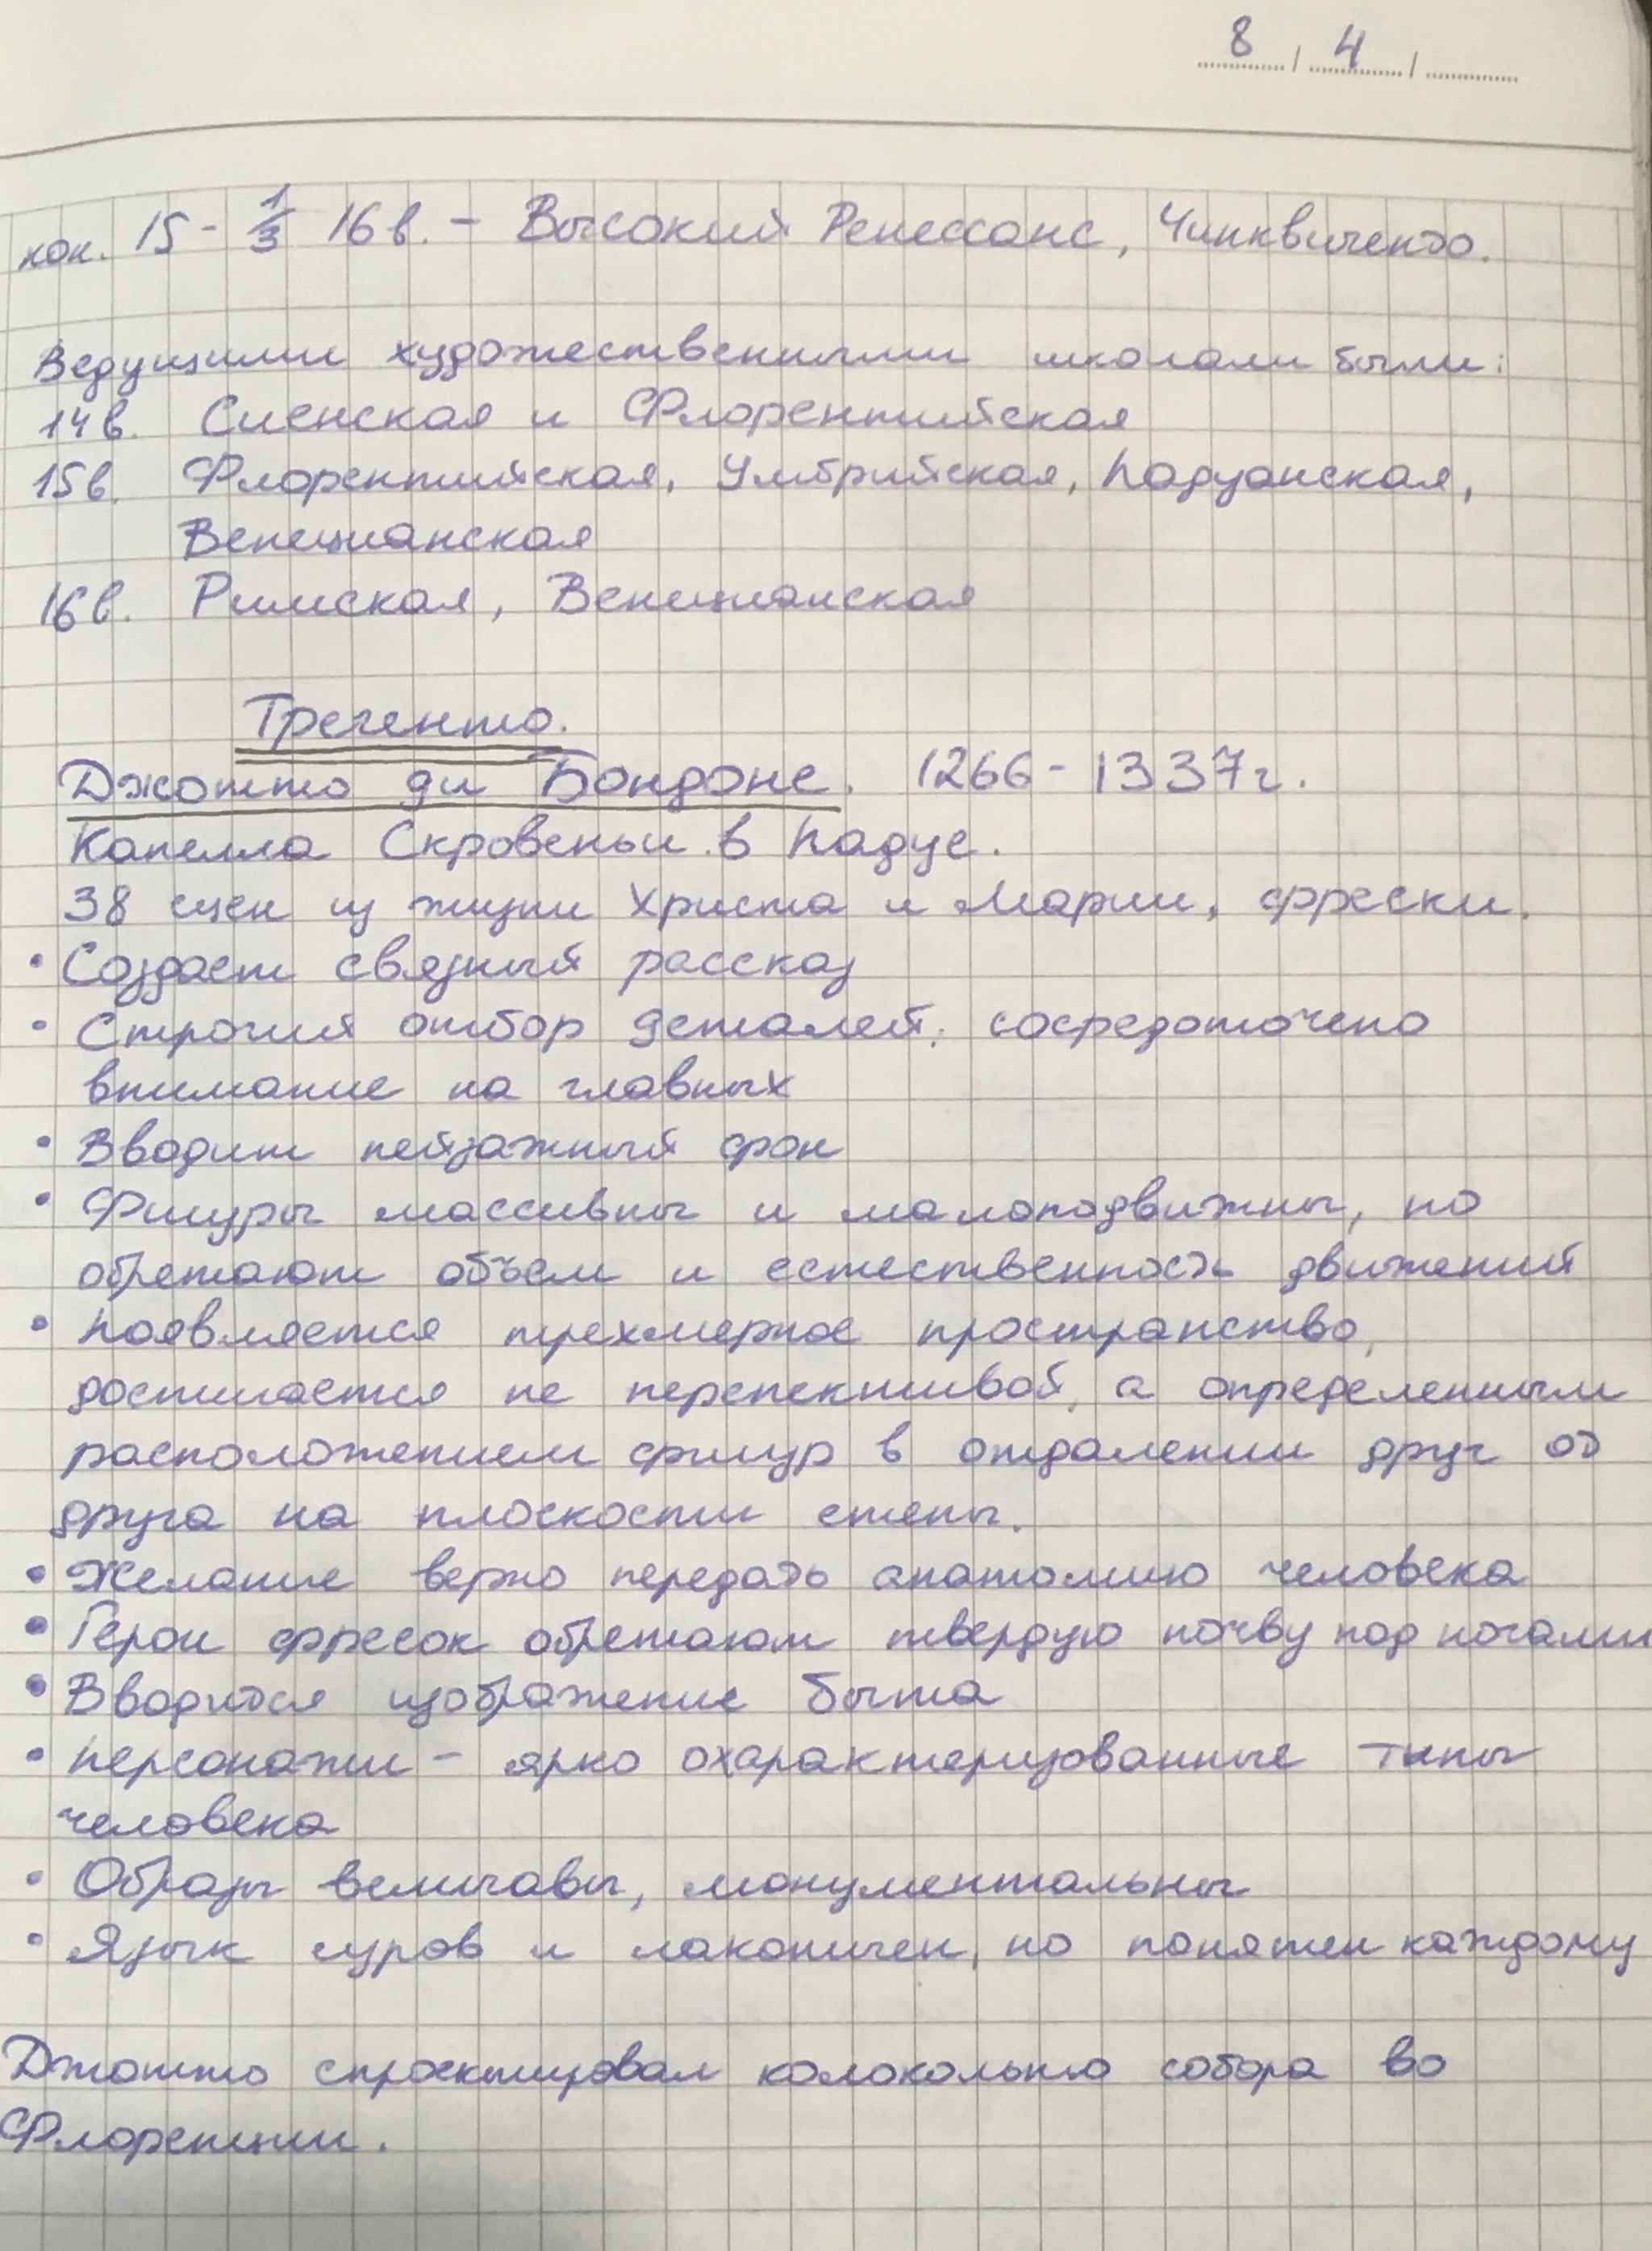 8 / 4 /
кон. 15 - 1/3 16 в. - Высокий Ренессанс, Чинквиченто.
Ведущими художественными школами были:
14 в. Сиенская и Флорентийская
15 в. Флорентийская, Умбрийская, Падуанская,
Венецианская
16 в. Римская, Венецианская
Треченто.
Джотто ди Бондоне. 1266 - 1337 г.
Капелла Скровеньи в Падуе.
38 сцен из жизни Христа и Марии, фрески.
• Создает связный рассказ
• Строгий отбор деталей, сосредоточено
внимание на главных
• Вводит пейзажный фон
• Фигуры массивны и малоподвижны, но
обретают объем и естественность движений
• Появляется трехмерное пространство,
достигается не перспективой, а определенным
расположением фигур в отдалении друг от
друга на плоскости стены.
• Желание верно передать анатомию человека
• Герои фресок обретают твердую почву под ногами
• Вводится изображение быта
• персонажи - ярко охарактеризованные типы
человека
• Образы величавы, монументальны
• Язык суров и лаконичен, но понятен каждому
Джотто спроектировал колокольню собора во
Флоренции.